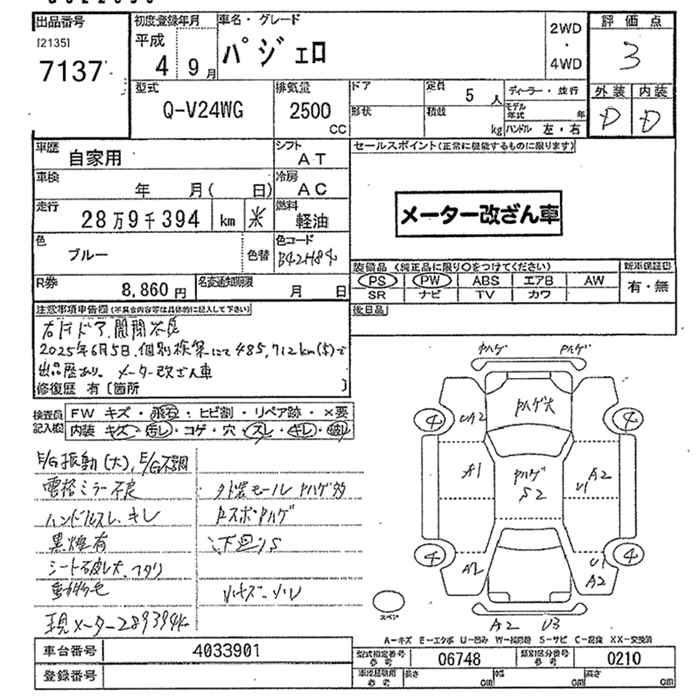 出品番号
[2135]
7137
初度登録年月
平成
4 9月
車名・グレード
パジェロ
2WD
・
4WD
評価点
3
外装 内装
D D
型式
Q-V24WG
排気量
2500
CC
ドア
形状
定員
5 人
積載
kg
ディーラー・並行
モデル年式 年
ハンドル 左・右
車歴
自家用
シフト
AT
車検
年 月( 日)
冷房
AC
走行
28万9千394 km 米
燃料
軽油
色
ブルー
色替
色コード
R券
8,860円
名変通知期限
月 日
セールスポイント(正常に機能するものに限ります)
メーター改ざん車
装備品 (純正品に限り○をつけてください)
PS PW ABS エアB AW
SR ナビ TV カワ
新車保証書
有・無
後日品
注意事項申告欄(不具合内容等は具体的に記入して下さい)
右片ドア、開閉不良
2025年6月5日、個別検索にて485,712km(S)で
出品歴あり。メーター改ざん車
修復歴 有[箇所 ]
検査員記入欄
FW キズ・飛石・ヒビ割・リペア跡・×要
内装 キズ・汚レ・コゲ・穴・スレ・キレ・
E/G振動(大)、E/G不調
電格ミラー不良
ハンドルスレ、キレ
黒煙有
シート
現メーター289394km
外装モール Pハゲ多
RスポPハゲ
下回りS
小キズ・小凹
Pハゲ Pハゲ
Pハゲ大
A1
Pハゲ
S2
A2
U1
U1
A2
4 4
4 4
スペア
A2 U3
A-キズ E-エクボ U-凹み W-補修跡 S-サビ C-腐食 XX-交換済
車台番号
4033901
登録番号
型式指定番号
参考
06748
類別区分番号
参考
0210
車検証数値
参考
長さ cm 幅 cm 高さ cm